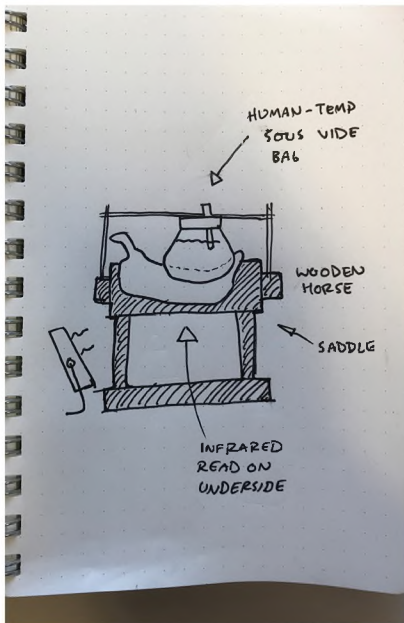 HUMAN-TEMP
SOUS VIDE
BAG
WOODEN
HORSE
SADDLE
INFRARED
READ ON
UNDERSIDE